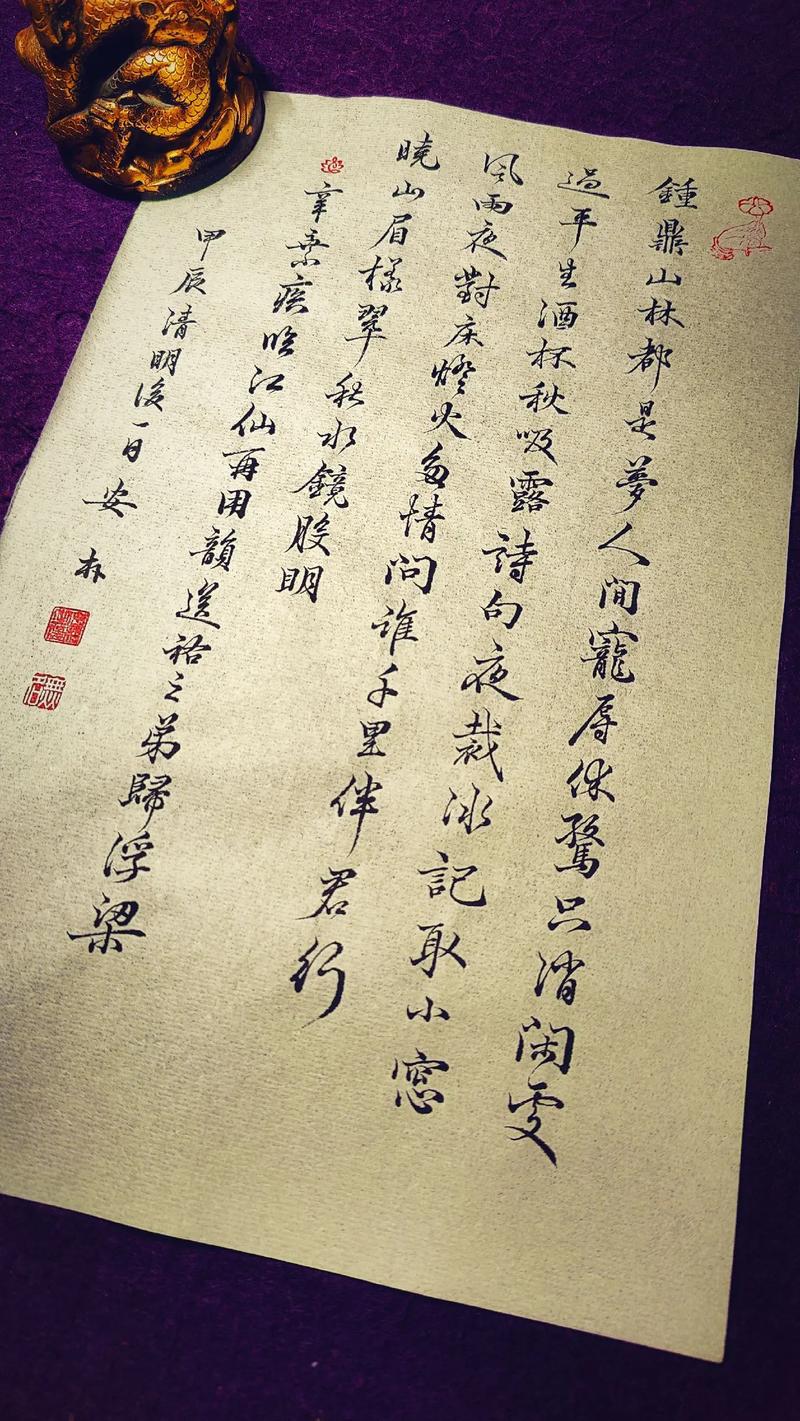 鍾鼎山林都是夢人間寵辱休驚只消閑處
過平生酒杯秋吸露詩句夜裁冰記取小窓
風雨夜對床燈火多情問誰千里伴君行
曉山眉樣翠秋水鏡般明
辛棄疾臨江仙再用韻送祐之弟歸浮梁
甲辰清明後一日安